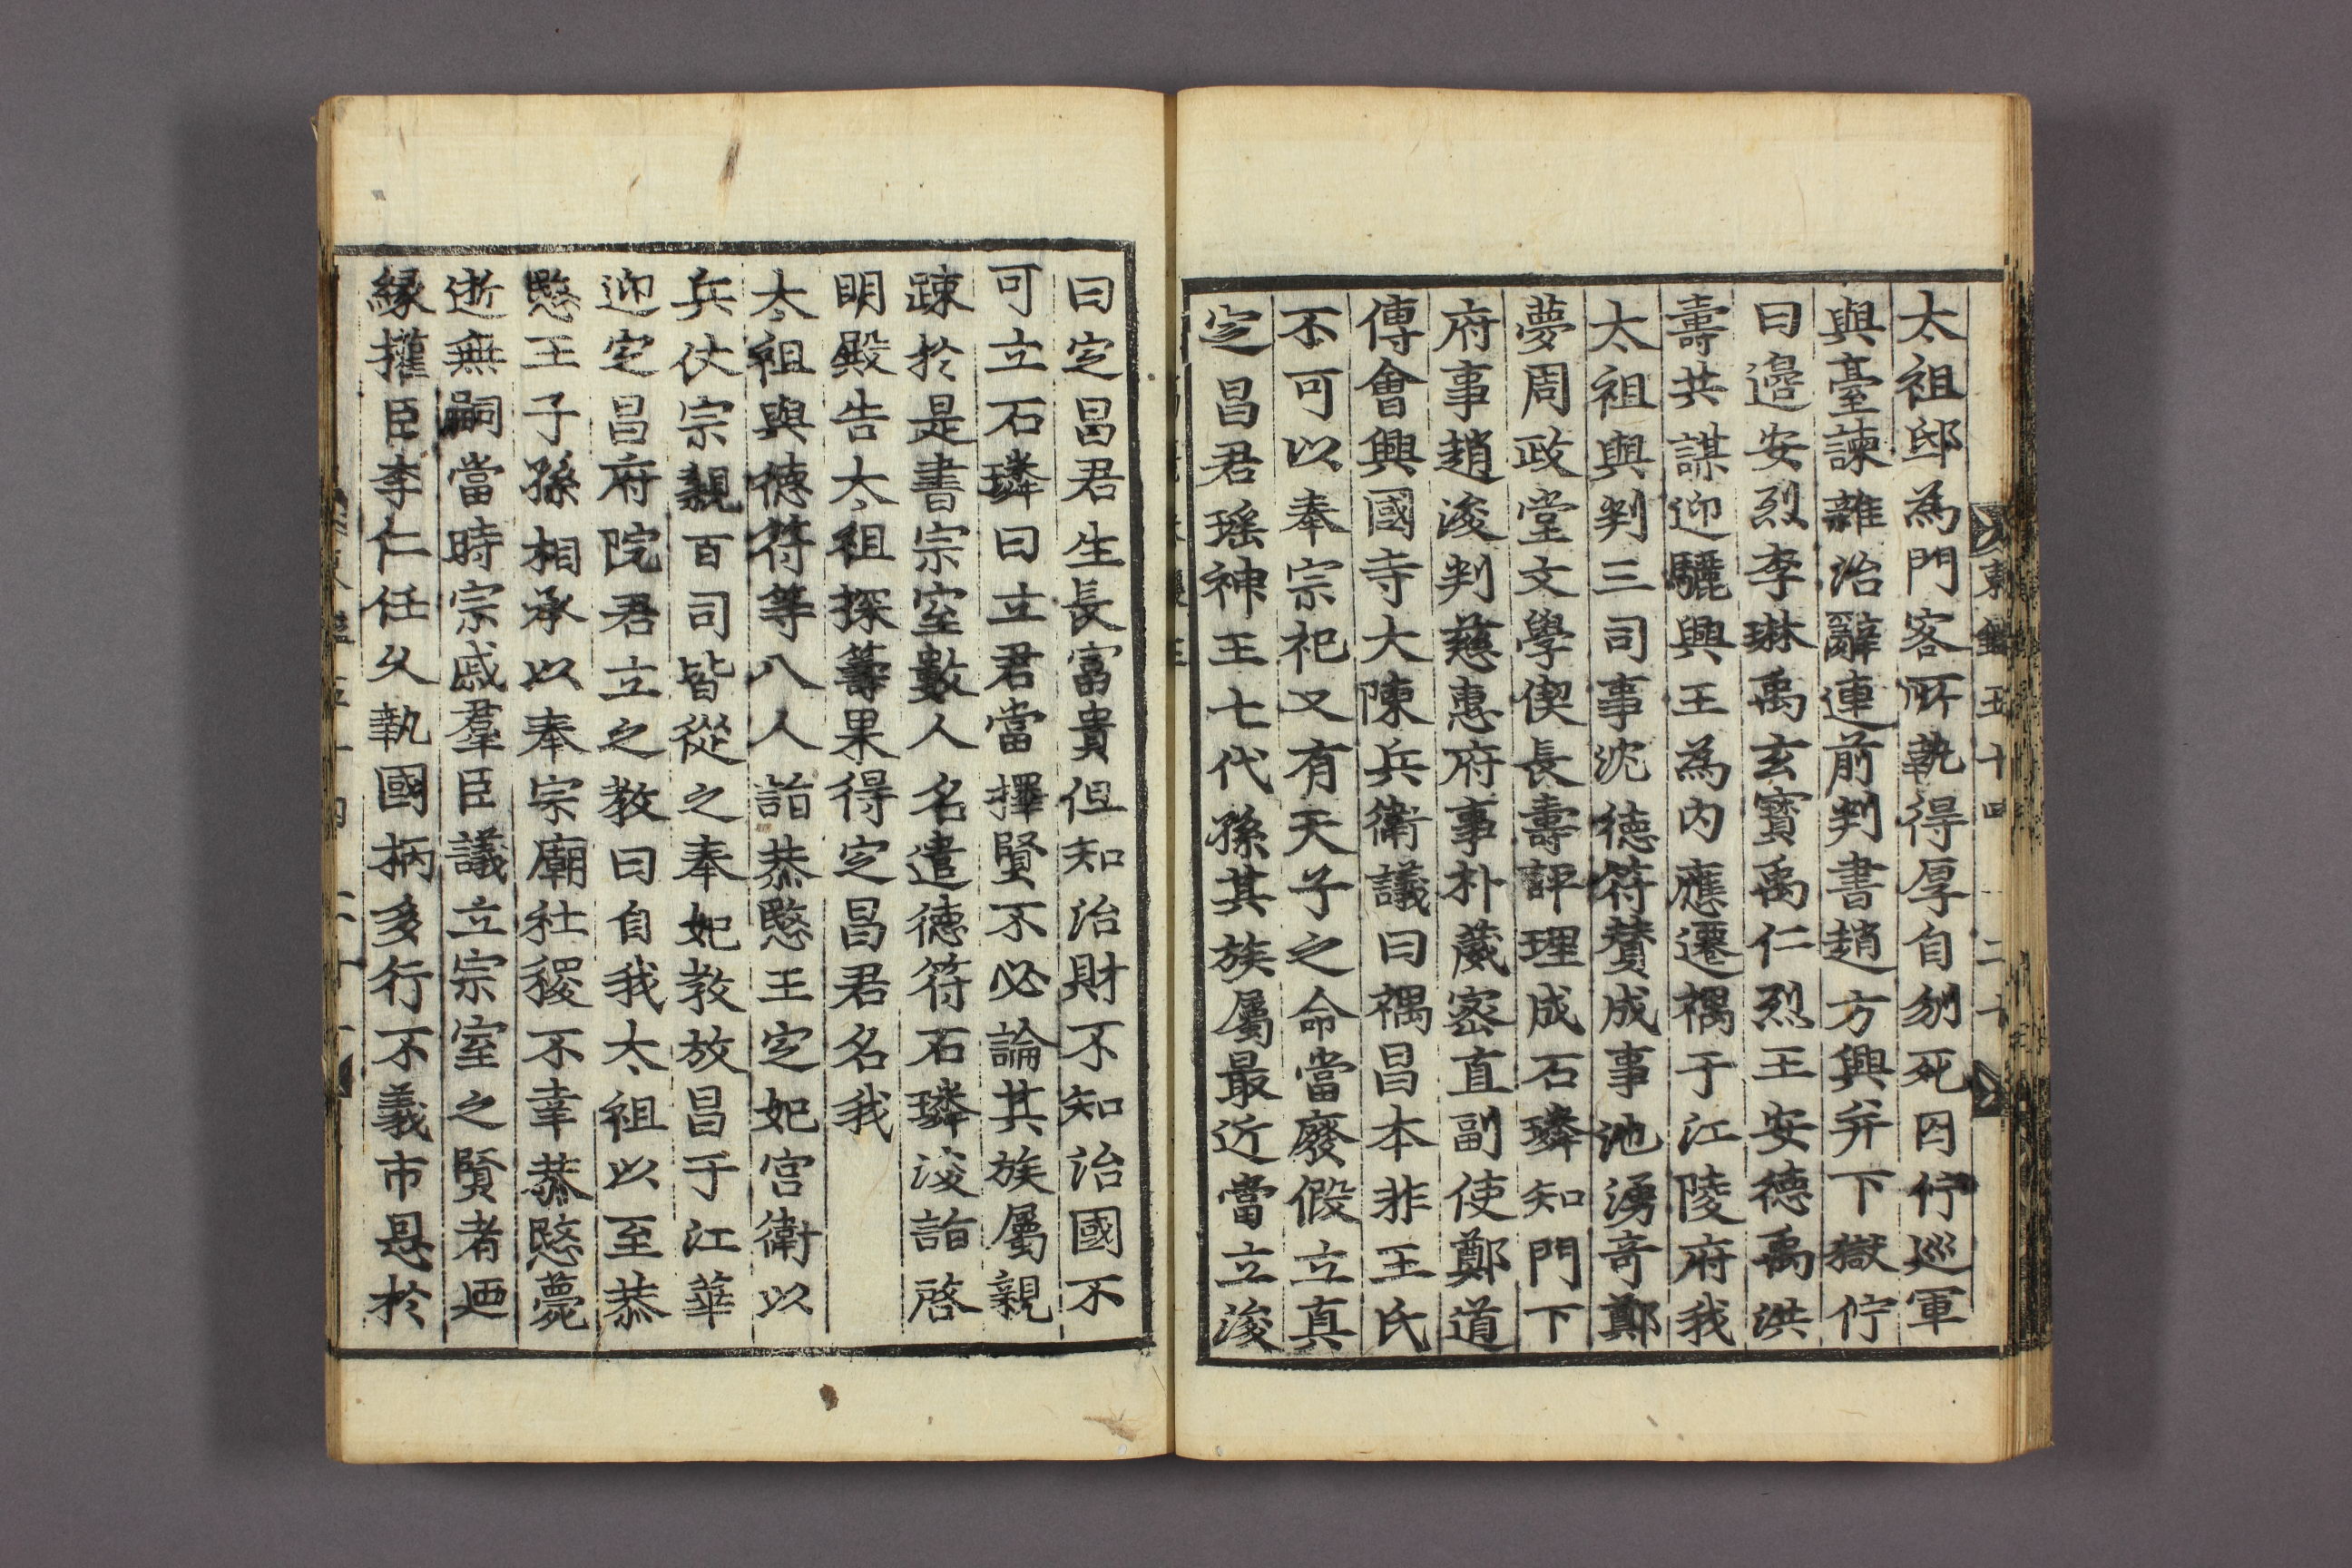 太祖邸為門客所執得厚自刎死囚佇巡軍
與臺諫雜治辭連前判書趙方興弁下獄佇
曰邉安烈李琳禹玄寳禹仁烈王安德禹洪
壽共謀迎驪興王為内應遷禑于江陵府我
太祖與判三司事沈德符賛成事池湧奇鄭
夢周政堂文學偰長壽評理成石璘知門下
府事趙浚判慈惠府事朴葳宻直副使鄭道
傳會興國寺大陳兵衛議曰禑昌本非王氏
不可以奉宗祀又有天子之命當廢假立真
定昌君瑶神王七代孫其族屬最近當立浚
曰定昌君生長富貴但知治財不知治國不
可立石璘曰立君當擇賢不必論其族屬親
踈於是書宗室數人名遣德符石璘浚詣啓
明殿告太祖探籌果得定昌君名我
太祖與德符等八人詣恭愍王定妃宮衛以
兵仗宗親百司皆從之奉妃教放昌于江華
迎定昌府院君立之教曰自我太祖以至恭
愍王子孫相承以奉宗廟社稷不幸恭愍薨
逝無嗣當時宗戚羣臣議立宗室之賢者廼
縁權臣李仁任久執國柄多行不義市恩於
東鑑五十四 二十